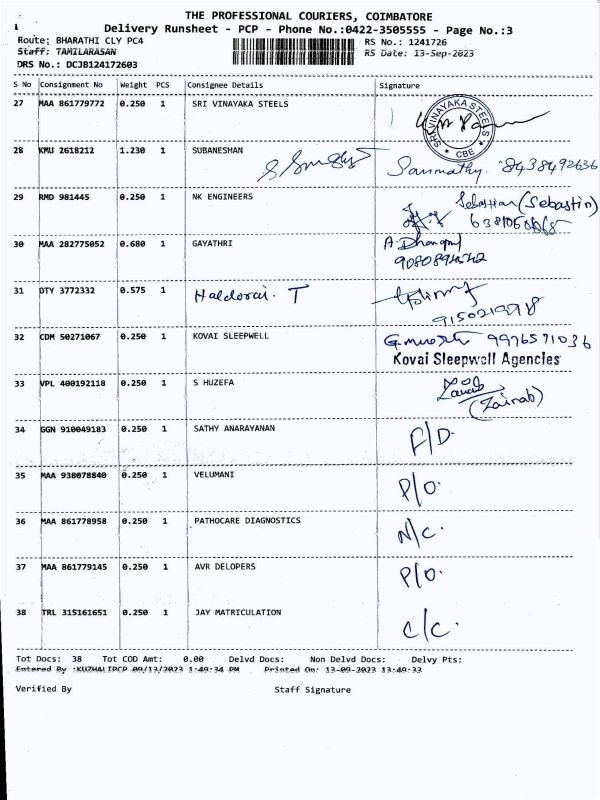 THE PROFESSIONAL COURIERS, COIMBATORE
Delivery Runsheet - PCP - Phone No.:0422-3505555 - Page No.:3
Route: BHARATHI CLY PC4 RS No.: 1241726
Staff: TAMILARASAN RS Date: 13-Sep-2023
DRS No.: DCJB124172603
S No Consignment No Weight PCS Consignee Details Signature
27 MAA 861779772 0.250 1 SRI VINAYAKA STEELS
SRI VINAYAKA STEELS * CBE *
28 KMU 2618212 1.230 1 SUBANESHAN
Sanmathy 8438492636
29 RMD 981445 0.250 1 NK ENGINEERS
Sebastian (Sebastin)
30 MAA 282775052 0.680 1 GAYATHRI
31 DTY 3772332 0.575 1 Haldorai. T
9150219978
32 CDM 50271067 0.250 1 KOVAI SLEEPWELL
9976571036
Kovai Sleepwell Agencies
33 VPL 400192118 0.250 1 S HUZEFA
(Zainab)
34 GGN 910049183 0.250 1 SATHY ANARAYANAN F/D.
35 MAA 938078840 0.250 1 VELUMANI P/O.
36 MAA 861778958 0.250 1 PATHOCARE DIAGNOSTICS N/C.
37 MAA 861779145 0.250 1 AVR DELOPERS P/O.
38 TRL 315161651 0.250 1 JAY MATRICULATION C/C.
Tot Docs: 38 Tot COD Amt: 0.00 Delvd Docs: Non Delvd Docs: Delvy Pts:
Entered By :KUZHALIPCP 09/13/2023 1:49:34 PM . Printed On: 13-09-2023 13:49:33
Verified By Staff Signature